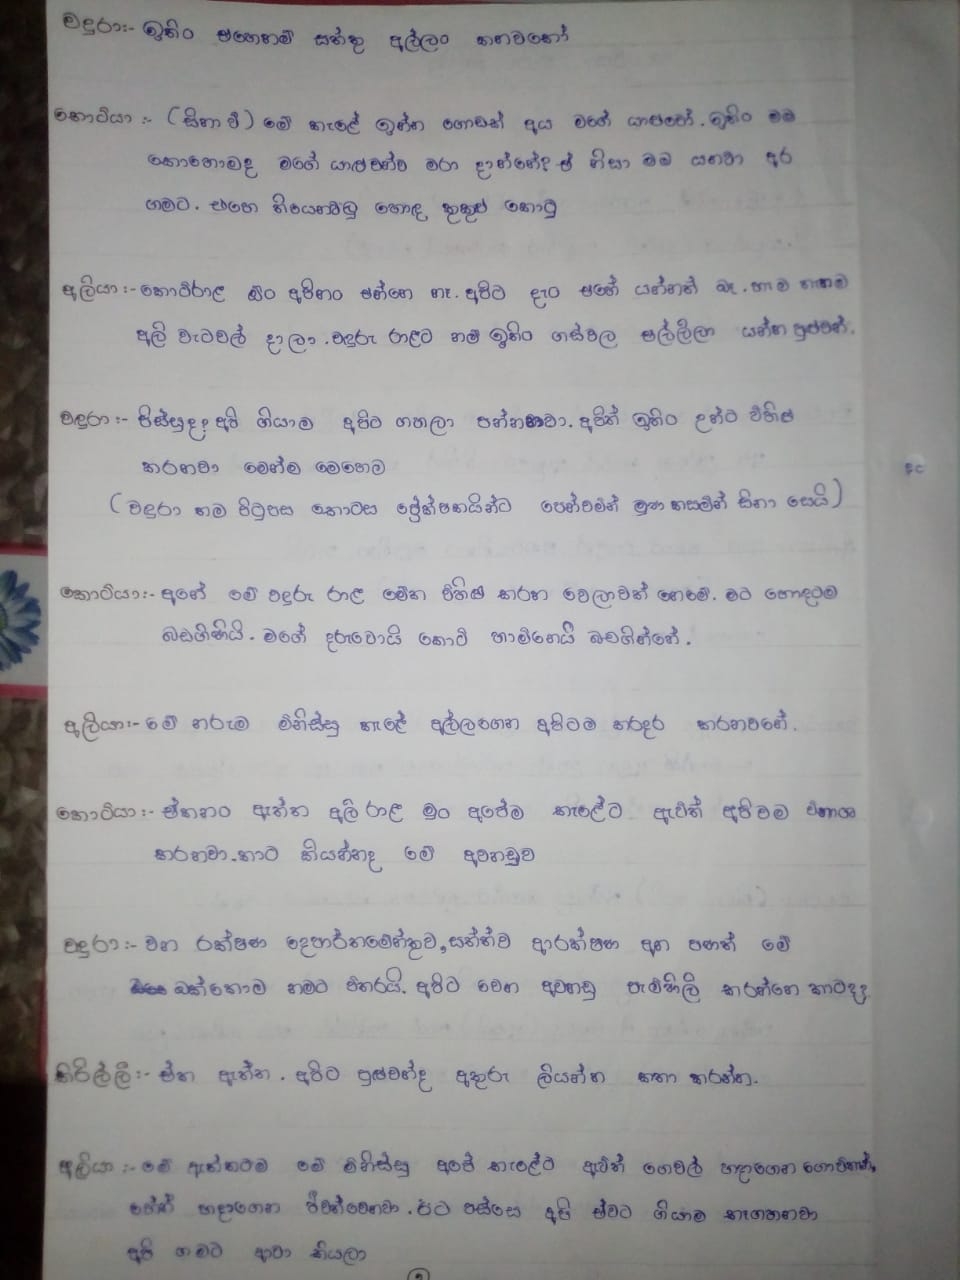 වඳුරා:- ඉතිං එහෙනම් සත්තු අල්ලං කනවකෝ
කොටියා :- (සිනා වී) මේ කැලේ ඉන්න ගොඩක් අය මගේ යාළුවෝ. ඉතිං මම
කොහොමද මගේ යාළුවන්ව මරා දාන්නේද ඒ නිසා මම යනවා අර
ගමට. එහෙ තියෙනවලු හොඳ කුකුළු කොටු
අලියා :- කොටිරාල ඕං අපිනං එන්නෙ නෑ. අපිට දැං එහේ යන්නත් බෑ. හැම තැනම
අලි වැටවල් දාලා. වඳුරු රාලට නම් ඉතිං ගස්වල එල්ලිලා යන්න පුළුවන්.
වඳුරා :- පිස්සුද අපි ගියාම අපිට ගහලා පන්නනවා. අපිත් ඉතිං උන්ට විහිළු
කරනවා මෙන්න මෙහෙම
(වඳුරා තම පිටුපස කොටස ප්‍රේක්ෂකයින්ට පෙන්වමින් මුහුණ කසමින් සිනා සෙයි)
කොටියා:- අනේ මේ වඳුරු රාල මේක විහිළු කරන වෙලාවක් නෙමේ. මට හොඳටම
බඩගිනියි. මගේ දරුවොයි කොටි හාමිනෙයි බඩගින්නේ.
අලියා:- මේ නරුම මිනිස්සු කැලේ අල්ලගෙන අපිටම කරදර කරනවනේ.
කොටියා:- ඒකනං ඇත්ත අලි රාල මුං අපේම කැලේට ඇවිත් අපිවම විනාශ
කරනවා. කාට කියන්නද මේ අවනඩුව
වඳුරා :- වන රක්ෂණ දෙපාර්තමේන්තුව, සත්ත්ව ආරක්ෂණ අන පනත් මේ
ඔක්කොම නමට විතරයි. අපිට වෙන අවනඩු පැමිණිලි කරන්නෙ කාටද
කිරිල්ලි:- ඒක ඇත්ත. අපිට පුළුවන්ද අකුරු ලියන්න කතා කරන්න.
අලියා :- මේ ඇත්තටම මේ මිනිස්සු අපේ කැලේට ඇවිත් ගෙවල් හදාගෙන ගොවිතැන්
හදාගෙන ජීවත්වෙනවා. ඊට පස්සෙ අපි ඒවට ගියාම කෑගහනවා
අපි ගමට ආවා කියලා